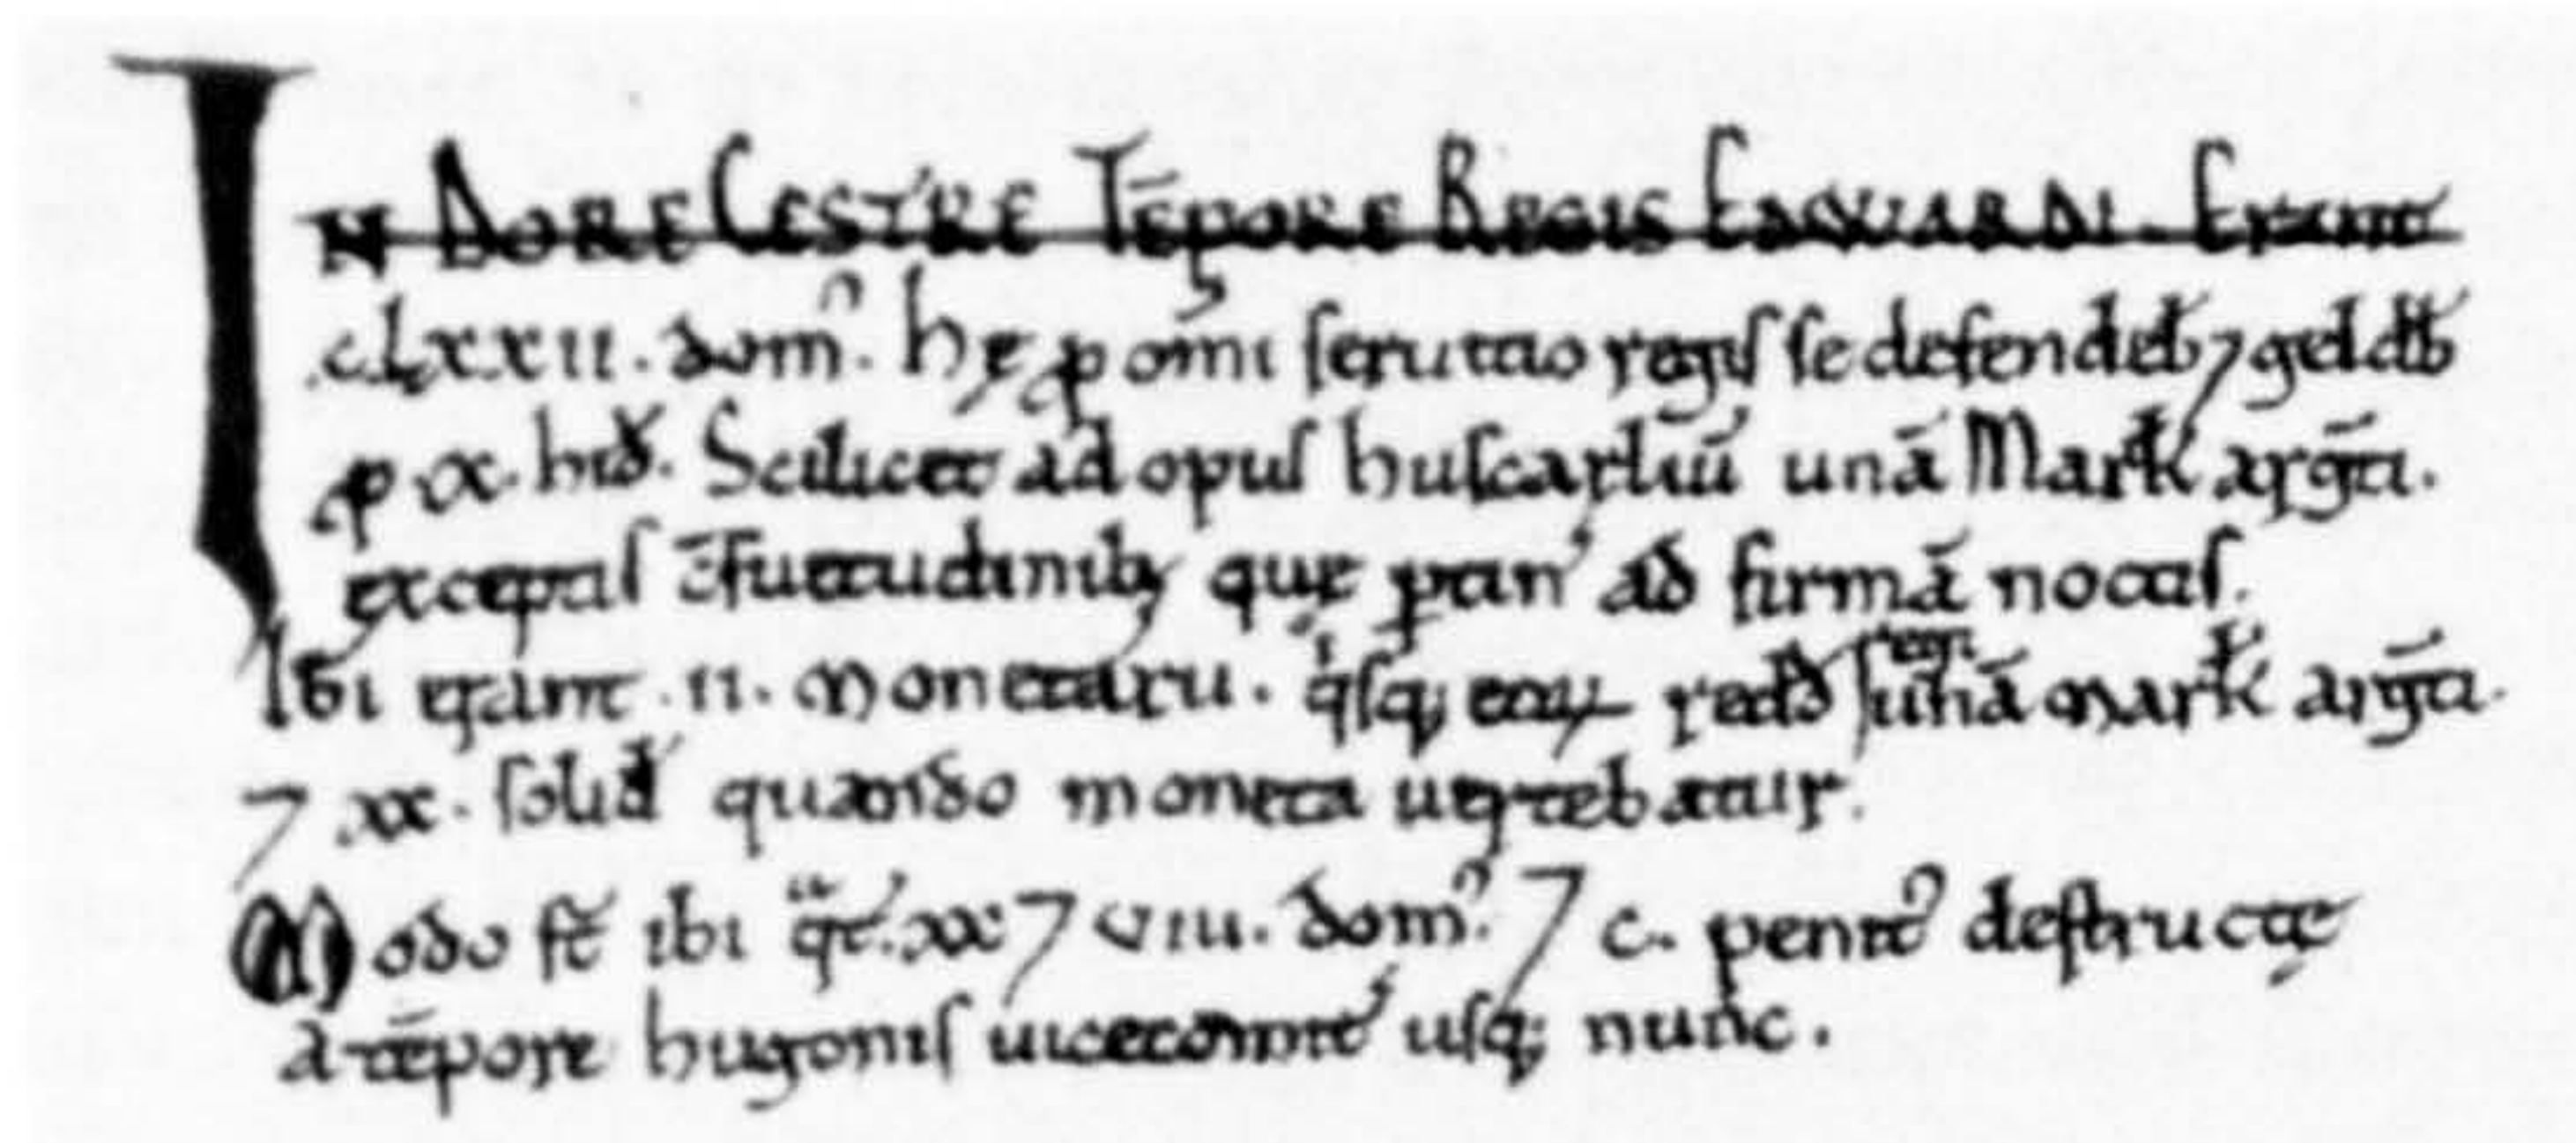 IN DORECESTRE Tēpore Regis Eadwardi. Erant
.clxxii. dom̉. hę ꝓ om̄i seruitio regis se defendeb̄ ⁊ geldb̄
ꝓ .x. hid̛. Scilicet ad opus huscarliū unā Mark̛ argn̄ti.
exceptis c̄suetudinib; quę ꝑtin̛ ad firmā noctis.
Ibi erant .ii. monetarii. qisq; eoꝝ redđ regi unā mark̛ argn̄ti.
⁊ xx. solid̛ quando moneta uertebatur.
Modo st̄ ibi qͣt̛.xx ⁊ viii. dom̉. ⁊ c. penit̉ destructę
a tēpore hugonis uicecomit̛ usq; nunc.